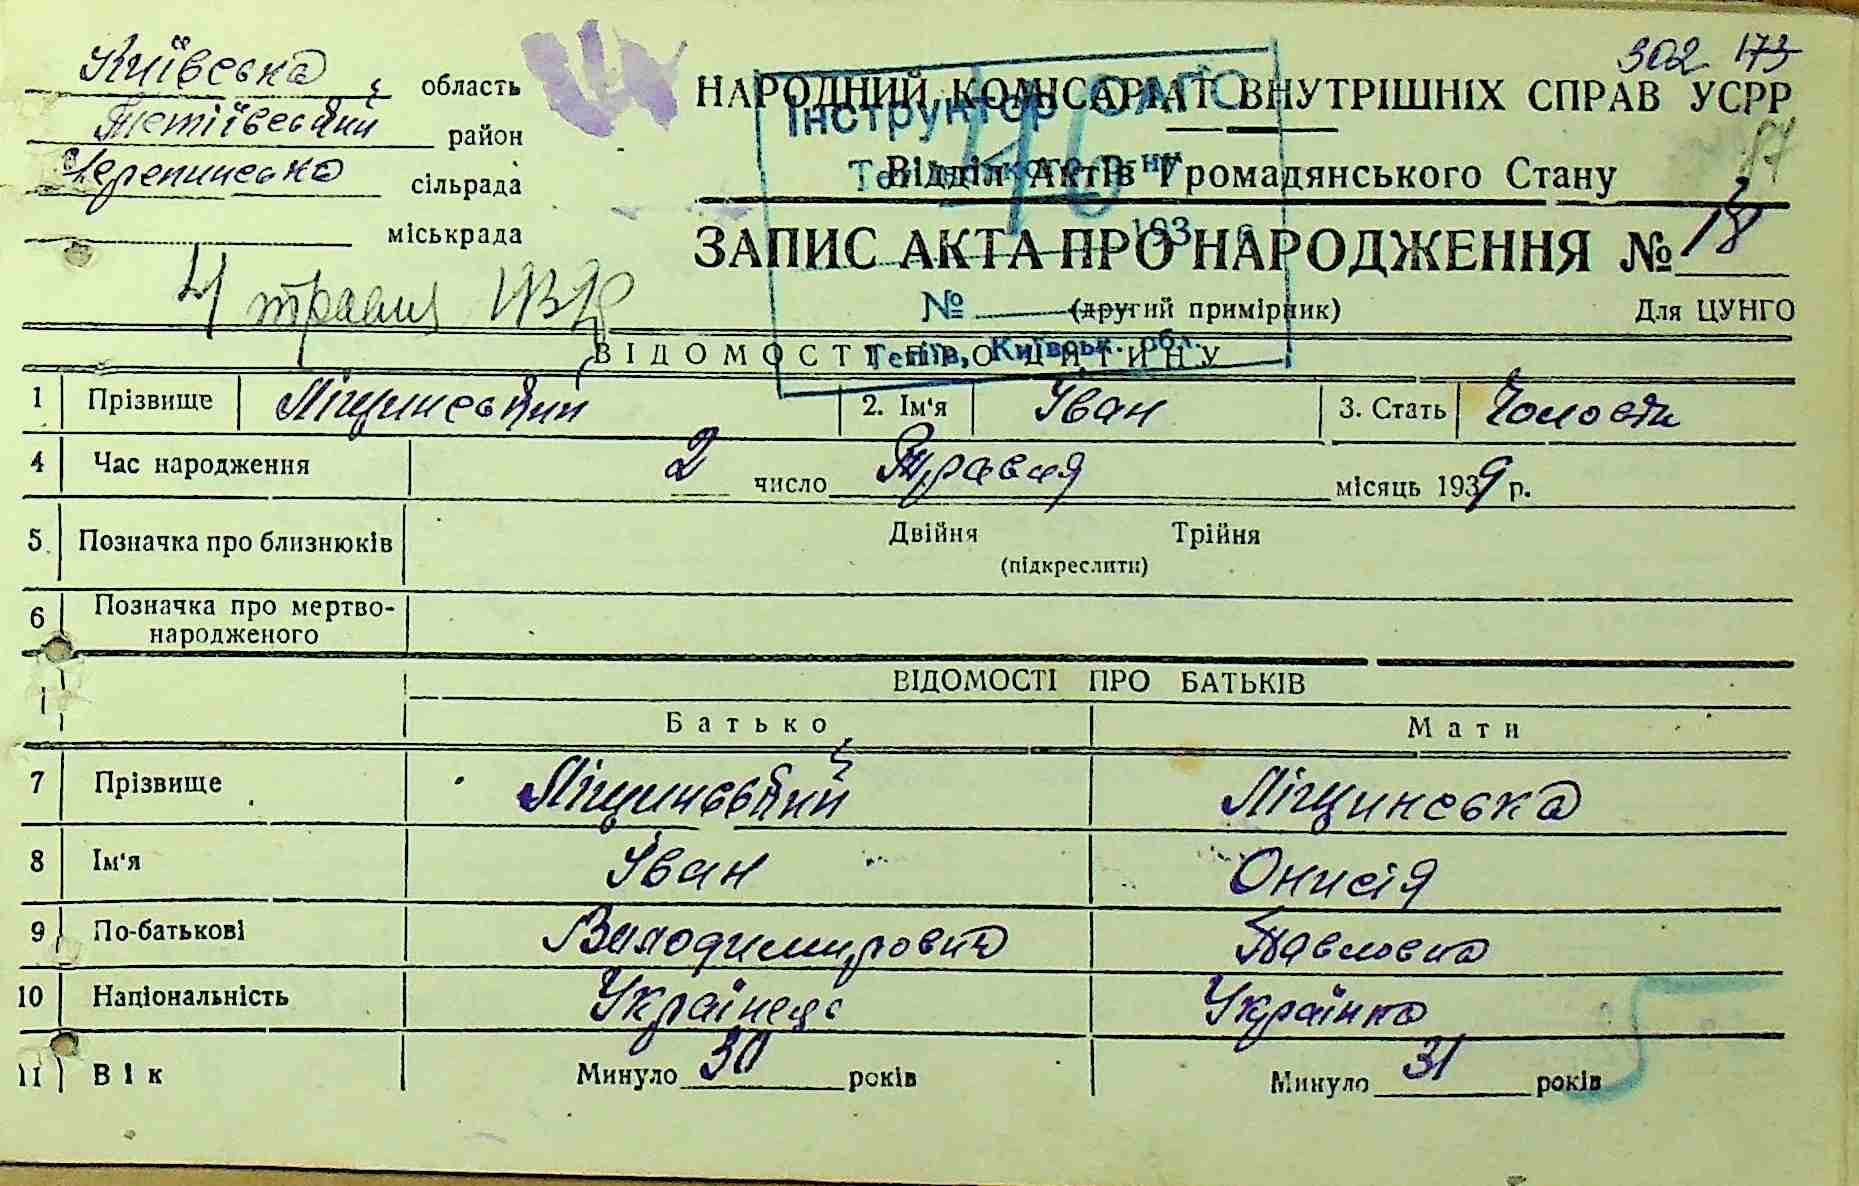 302 173
Київська область
НАРОДНИЙ КОМІСАРІАТ ВНУТРІШНІХ СПРАВ УСРР
Інструктор ЗАГС
Тетіївський район
Черепинська сільрада
Відділ Актів Громадянського Стану
міськрада
ЗАПИС АКТА ПРО НАРОДЖЕННЯ № 18
193
4 травня 1939
№ (другий примірник) Для ЦУНГО
ВІДОМОСТІ ПРО ДИТИНУ
Тетіїв, Київськ. обл.
1 Прізвище Ліщинський 2. Ім'я Іван 3. Стать Чоловіч
4 Час народження 2 число Травня місяць 1939 р.
5. Позначка про близнюків Двійня Трійня
(підкреслити)
6 Позначка про мертво-
народженого
ВІДОМОСТІ ПРО БАТЬКІВ
Батько Мати
7 Прізвище Ліщинський Ліщинська
8 Ім'я Іван Онисія
9 По-батькові Володимирович Павловна
10 Національність Українець Українка
11 Вік Минуло 30 років Минуло 31 років